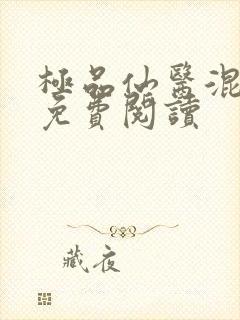 極品仙醫混
免費閱讀
藏夜